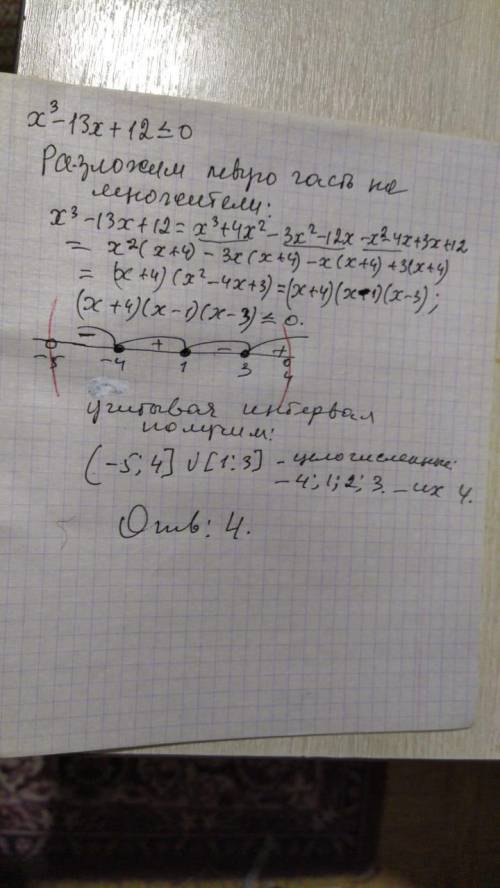 x³-13x+12≤0
Разложим левую часть на
множители:
x³-13x+12=x³+4x²-3x²-12x-x²-4x+3x+12
= x²(x+4)-3x(x+4)-x(x+4)+3(x+4)
= (x+4)(x²-4x+3)=(x+4)(x-1)(x-3);
(x+4)(x-1)(x-3)≤0.
- + - +
-5 -4 1 3 4
учитывая интервал
получим:
(-5; 4] ∪ [1; 3] - целочисленные:
-4; 1; 2; 3. - их 4.
Отв: 4.